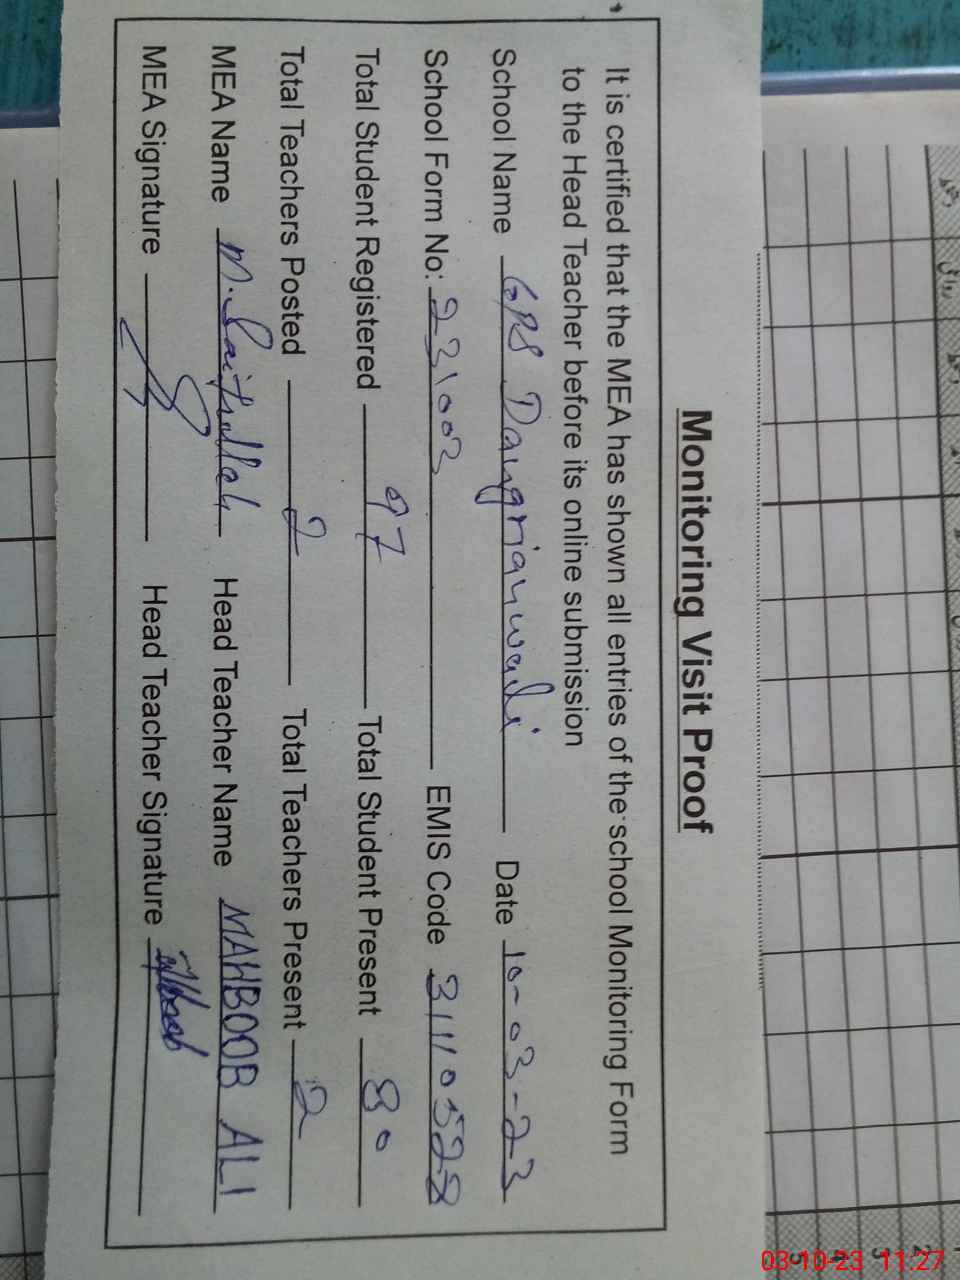 Monitoring Visit Proof
It is certified that the MEA has shown all entries of the school Monitoring Form
to the Head Teacher before its online submission
School Name GPS Daugrianwali Date 10-03-23
School Form No: 231002 EMIS Code 31110522
Total Student Registered 97 Total Student Present 80
Total Teachers Posted 2 Total Teachers Present 2
MEA Name M. Saifullah Head Teacher Name MAHBOOB ALI
MEA Signature Head Teacher Signature
2
3
4
5
03-10-23 11:27